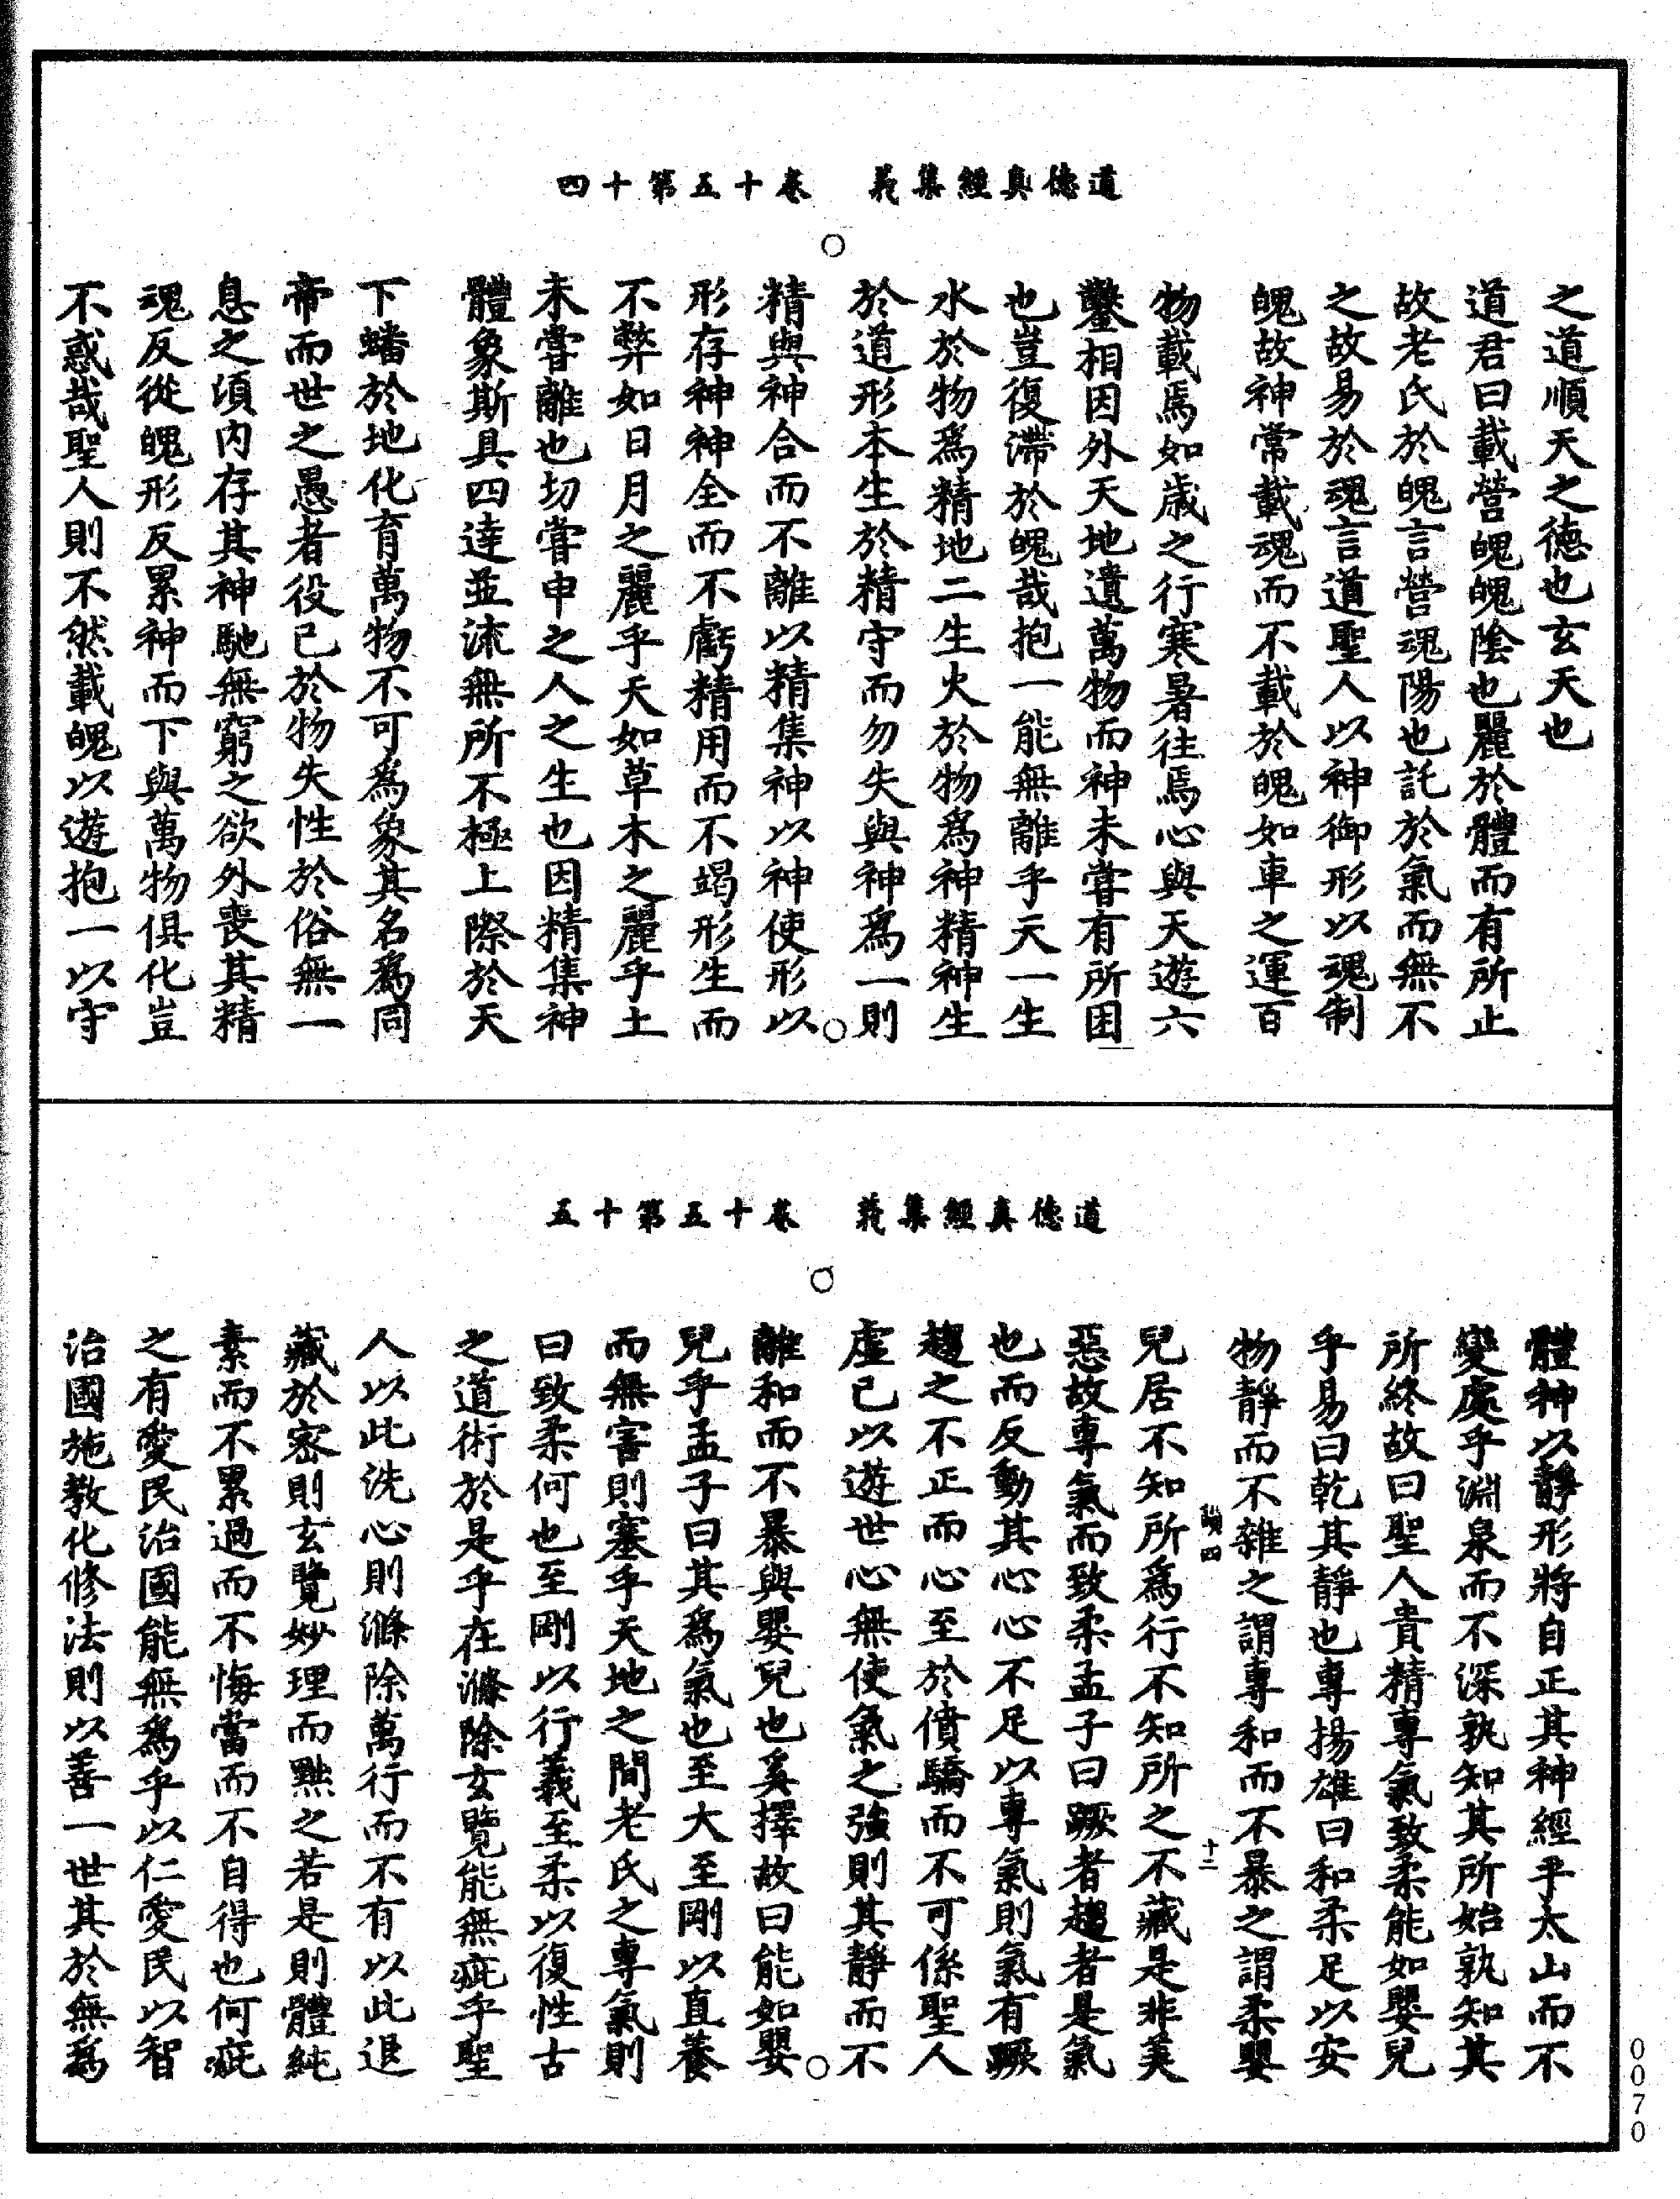 道德真經集義　卷十五第十四
之道順天之德也玄天也
道君曰載營魄魄陰也麗於體而有所止
故老氏於魄言營魂陽也託於氣而無不
之故易於魂言道聖人以神御形以魂制
魄故神常載魂而不載於魄如車之運百
物載焉如歲之行寒暑往焉心與天遊六
鑿相因外天地遺萬物而神未嘗有所困
也豈復滯於魄哉抱一能無離乎天一生
水於物爲精地二生火於物爲神精神生
於道形本生於精守而勿失與神爲一則
精與神合而不離以精集神以神使形以
形存神神全而不虧精用而不竭形生而
不弊如日月之麗乎天如草木之麗乎土
未嘗離也切嘗申之人之生也因精集神
體象斯具四達並流無所不極上際於天
下蟠於地化育萬物不可爲象其名爲同
帝而世之愚者役已於物失性於俗無一
息之頃內存其神馳無窮之欲外喪其精
魂反從魄形反累神而下與萬物俱化豈
不惑哉聖人則不然載魄以遊抱一以守
道德真經集義　卷十五第十五
體神以靜形將自正其神經乎太山而不
變處乎淵泉而不深孰知其所始孰知其
所終故曰聖人貴精專氣致柔能如嬰兒
乎易曰乾其靜也專揚雄曰和柔足以安
物靜而不雜之謂專和而不暴之謂柔嬰
韻四
十二
兒居不知所爲行不知所之不藏是非美
惡故專氣而致柔孟子曰蹶者趨者是氣
也而反動其心心不足以專氣則氣有蹶
趨之不正而心至於僨驕而不可係聖人
虛已以遊世心無使氣之強則其靜而不
離和而不暴與嬰兒也奚擇故曰能如嬰
兒乎孟子曰其爲氣也至大至剛以直養
而無害則塞乎天地之間老氏之專氣則
曰致柔何也至剛以行義至柔以復性古
之道術於是乎在滌除玄覽能無疵乎聖
人以此洗心則滌除萬行而不有以此退
藏於密則玄覽妙理而黜之若是則體純
素而不累過而不悔當而不自得也何疵
之有愛民治國能無爲乎以仁愛民以智
治國施教化修法則以善一世其於無爲
0070